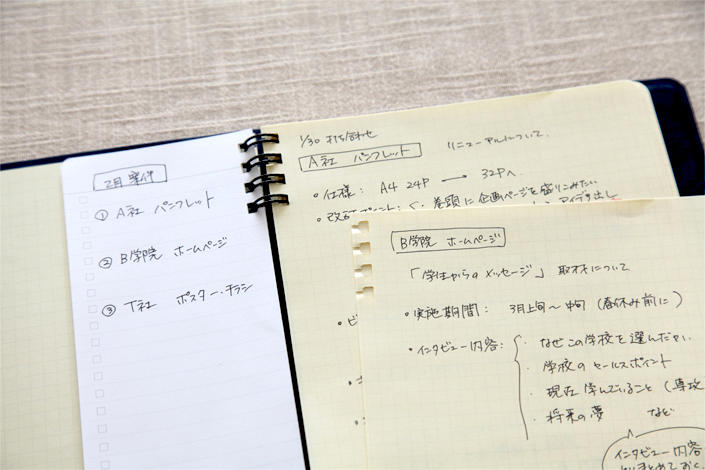 2月 案件
① A社 パンフレット
② B学院 ホームページ
③ T社 ポスター・チラシ
1/30 打ち合わせ
A社 パンフレット リニューアルについて
・仕様: A4 24P → 32Pへ
・改訂ポイント: 巻頭に企画ページを盛りこみたい
アイデア出し
B学院 ホームページ
「学生からのメッセージ」取材について
・実施期間: 3月上旬〜中旬(春休み前に)
・インタビュー内容: ・なぜこの学校を選んだか
・学校のセールスポイント
・現在学んでいること(専攻
・将来の夢 など
インタビュー内容
まとめておく